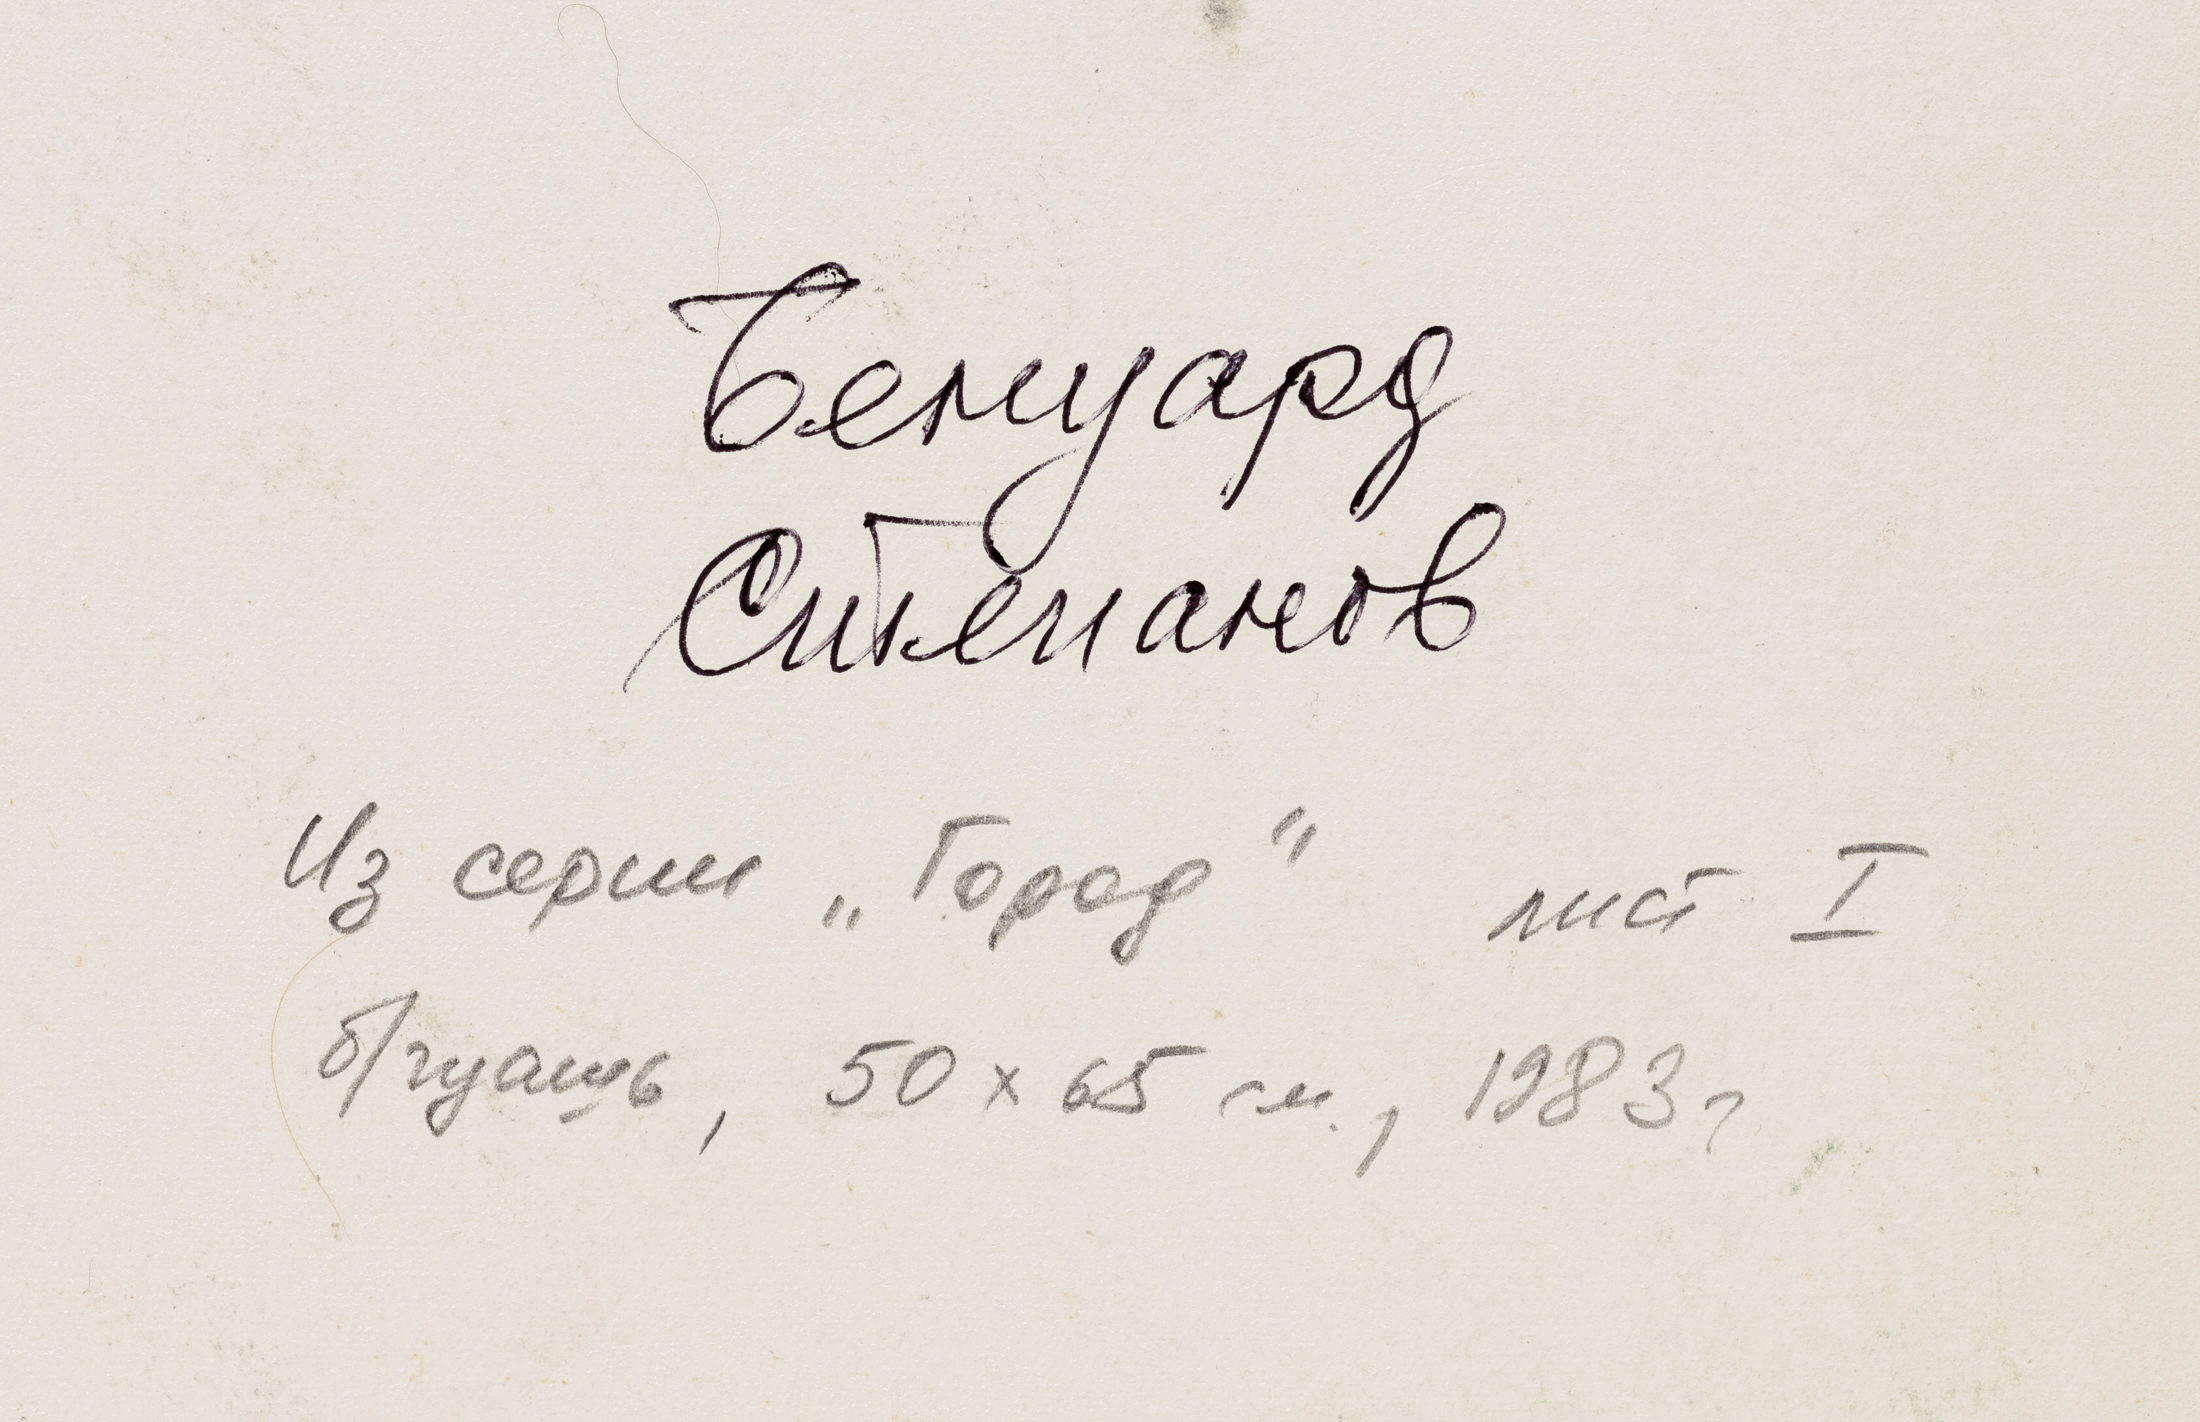 Степанов
Из серии „Город" лист I
б/гуашь, 50 x 65 см., 1983 г